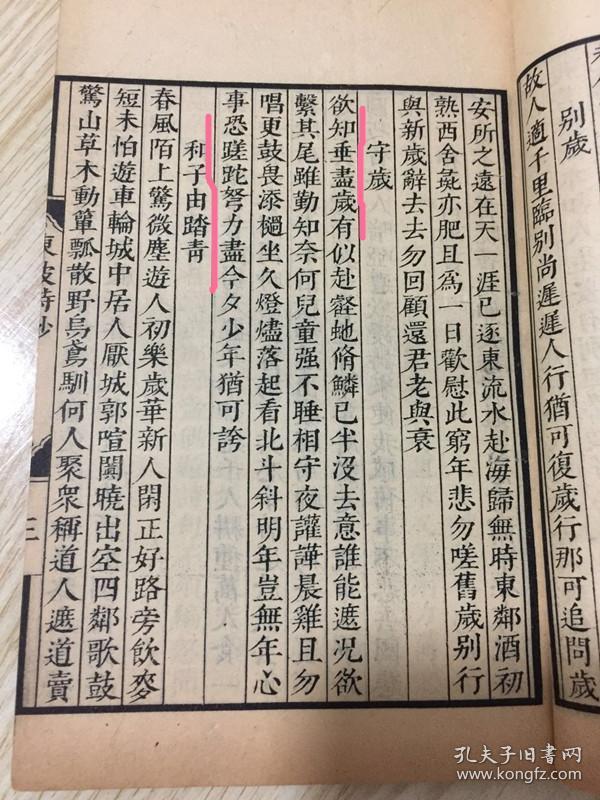 別歲
故人適千里臨別尚遲遲人行猶可復歲行那可追問歲
安所之遠在天一涯已逐東流水赴海歸無時東鄰酒初
熟西舍彘亦肥且為一日歡慰此窮年悲勿嗟舊歲別行
與新歲辭去去勿回顧還君老與衰
守歲
欲知垂盡歲有似赴壑虵脩鱗已半沒去意誰能遮况欲
繫其尾雖勤知奈何兒童强不睡相守夜讙譁晨雞且勿
唱更鼓畏添檛坐久燈燼落起看北斗斜明年豈無年心
事恐蹉跎努力盡今夕少年猶可誇
和子由踏青
春風陌上驚微塵遊人初樂歲華新人閑正好路旁飲麥
短未怕遊車輪城中居人厭城郭喧闐曉出空四鄰歌鼓
驚山草木動簞瓢散野烏鳶馴何人聚衆稱道人遮道賣
東坡詩鈔
三
孔夫子旧书网
www.kongfz.com